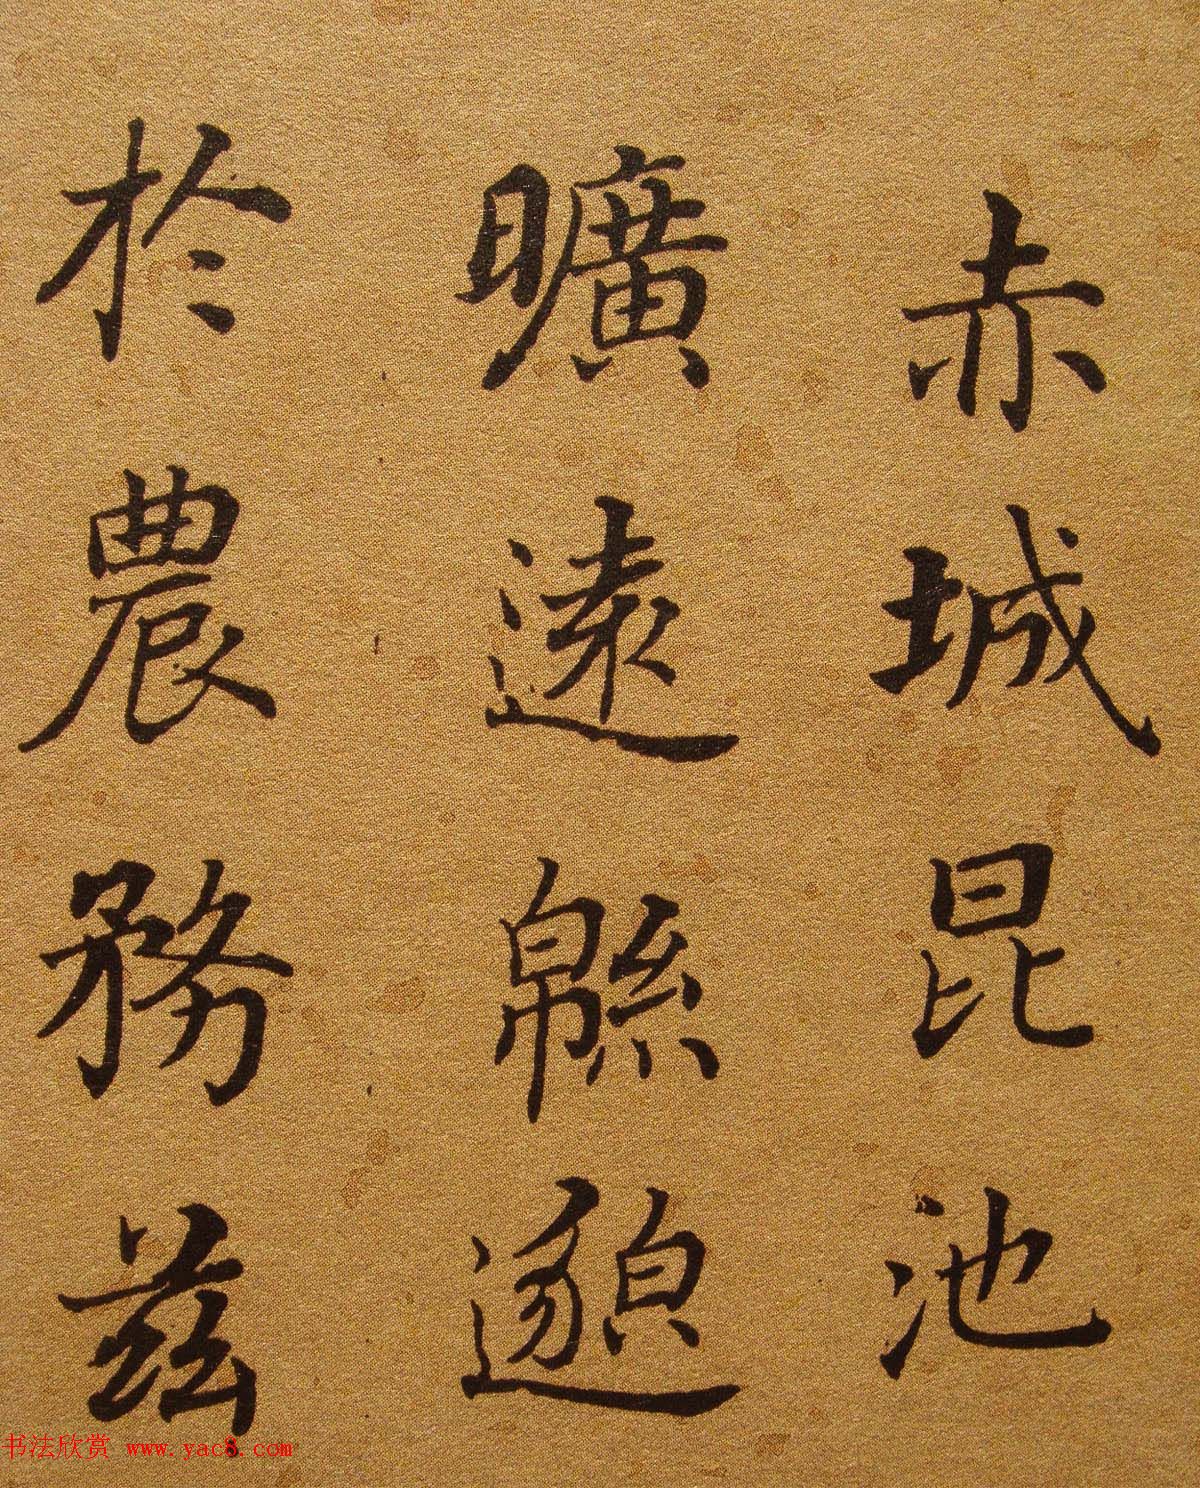 赤城昆池
曠遠緜邈
於農務茲
书法欣赏 www.yac8.com